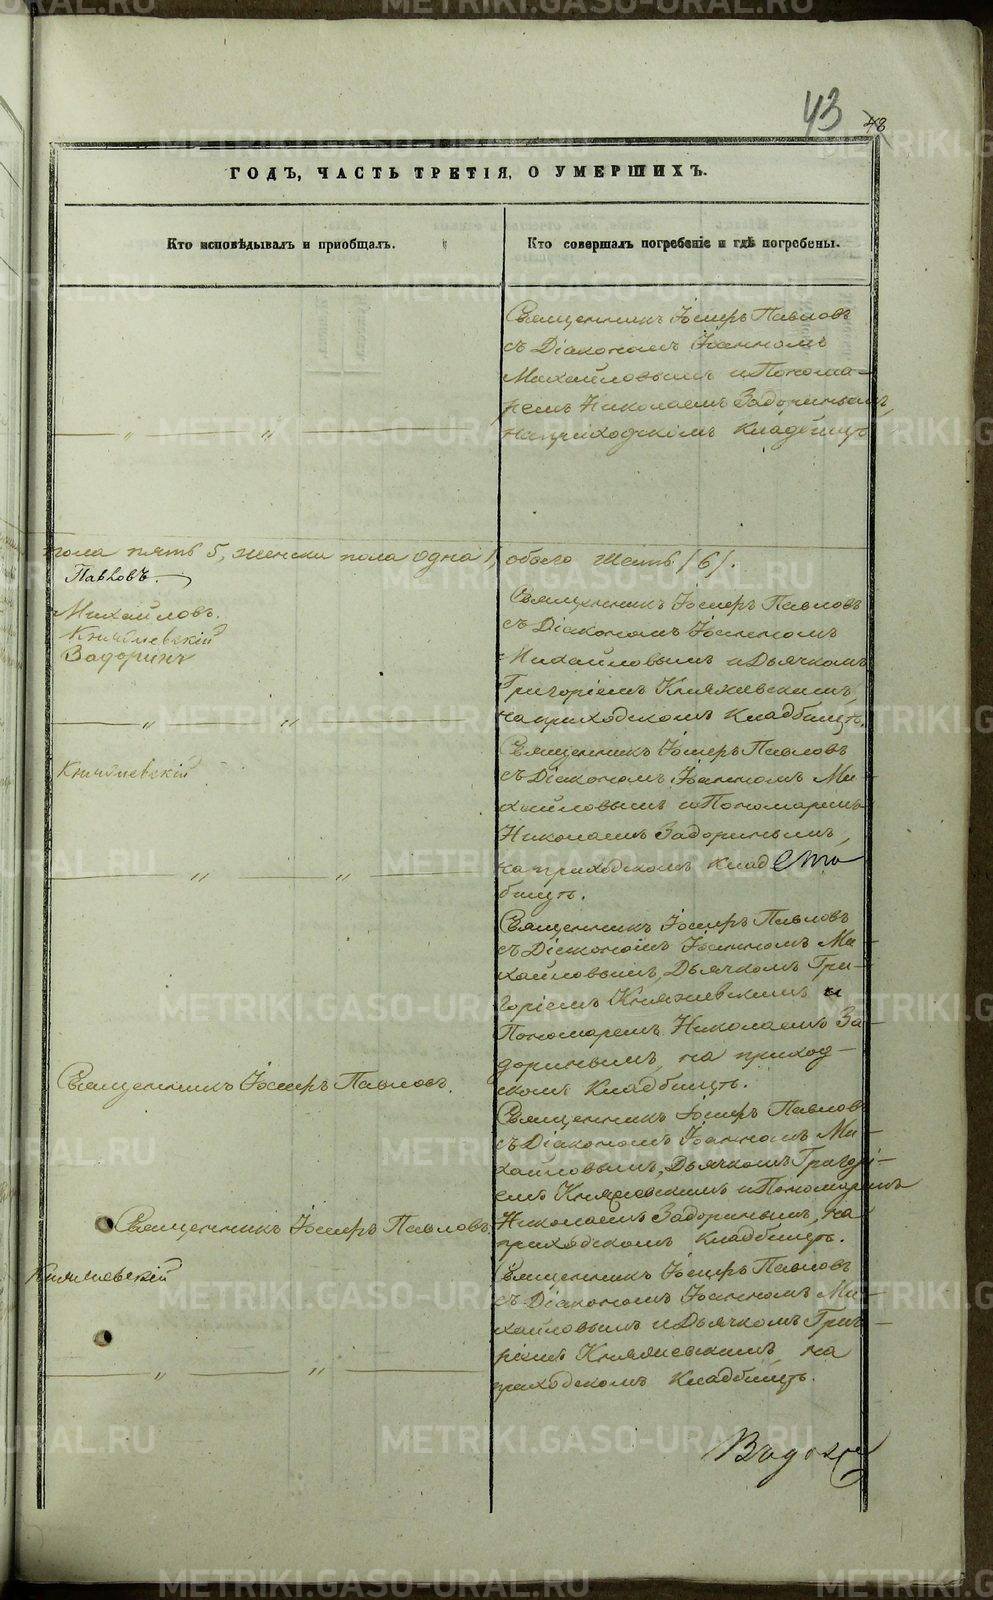 43 48
ГОДЪ, ЧАСТЬ ТРЕТІЯ, О УМЕРШИХЪ.
Кто исповѣдывалъ и пріобщалъ.
Кто совершалъ погребеніе и гдѣ погребены.
Священникъ Іосифъ Павловъ
съ Діакономъ Іоанномъ
Михайловымъ и Понома-
ремъ Николаемъ Задоринымъ,
на приходскомъ Кладбищѣ
пола пять 5, женска пола одна 1, обоего шесть /6/.
Павловъ.
Михайловъ.
Княжевскій
Задоринъ
Священникъ Іосифъ Павловъ
съ Діакономъ Іоанномъ
Михайловымъ и Дьячкомъ
Григоріемъ Княжевскимъ,
на приходскомъ Кладбищѣ.
Княжевскій
Священникъ Іосифъ Павловъ
съ Діакономъ Іоанномъ Ми-
хайловымъ и Пономаремъ
Николаемъ Задоринымъ,
на приходскомъ Клад
бищѣ.
Священникъ Іосифъ Павловъ
съ Діакономъ Іоанномъ Ми-
хайловымъ, Дьячкомъ Гри-
горіемъ Княжевскимъ и
Пономаремъ Николаемъ За-
доринымъ, на приход-
скомъ Кладбищѣ.
Священникъ Іосифъ Павловъ.
Священникъ Іосифъ Павловъ
съ Діакономъ Іоанномъ Ми-
хайловымъ, Дьячкомъ Григорі-
емъ Княжевскимъ и Пономаремъ
Николаемъ Задоринымъ, на
приходскомъ Кладбищѣ.
Священникъ Іосифъ Павловъ.
Княжевскій
Священникъ Іосифъ Павловъ
съ Діакономъ Іоанномъ Ми-
хайловымъ и Дьячкомъ Григо-
ріемъ Княжевскимъ на
приходскомъ Кладбищѣ.
METRIKI.GASO-URAL.RU